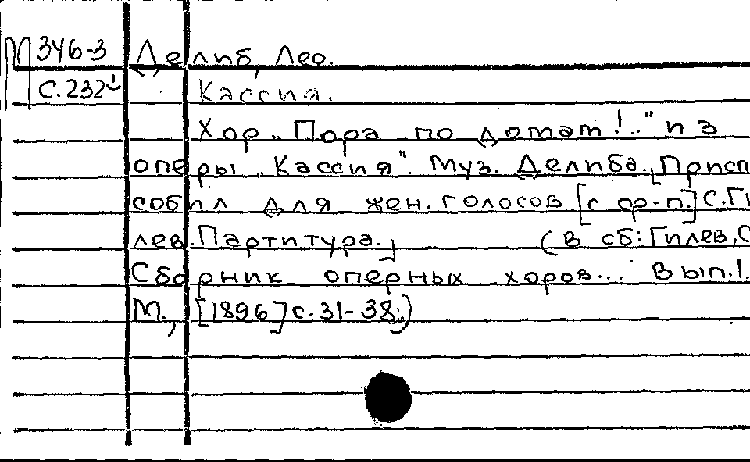 П 346-3 Делиб, Лео.
С.232¹ Кассия.
Хор „Пора по домам!.." из
оперы „Кассия". Муз. Делиба. [Присп
собил для жен. голосов [с ф-п.] С. Ги
лев. Партитура.] (В сб: Гилев, С
Сборник оперных хоров... Вып.1.
М., [1896] с.31-38.)